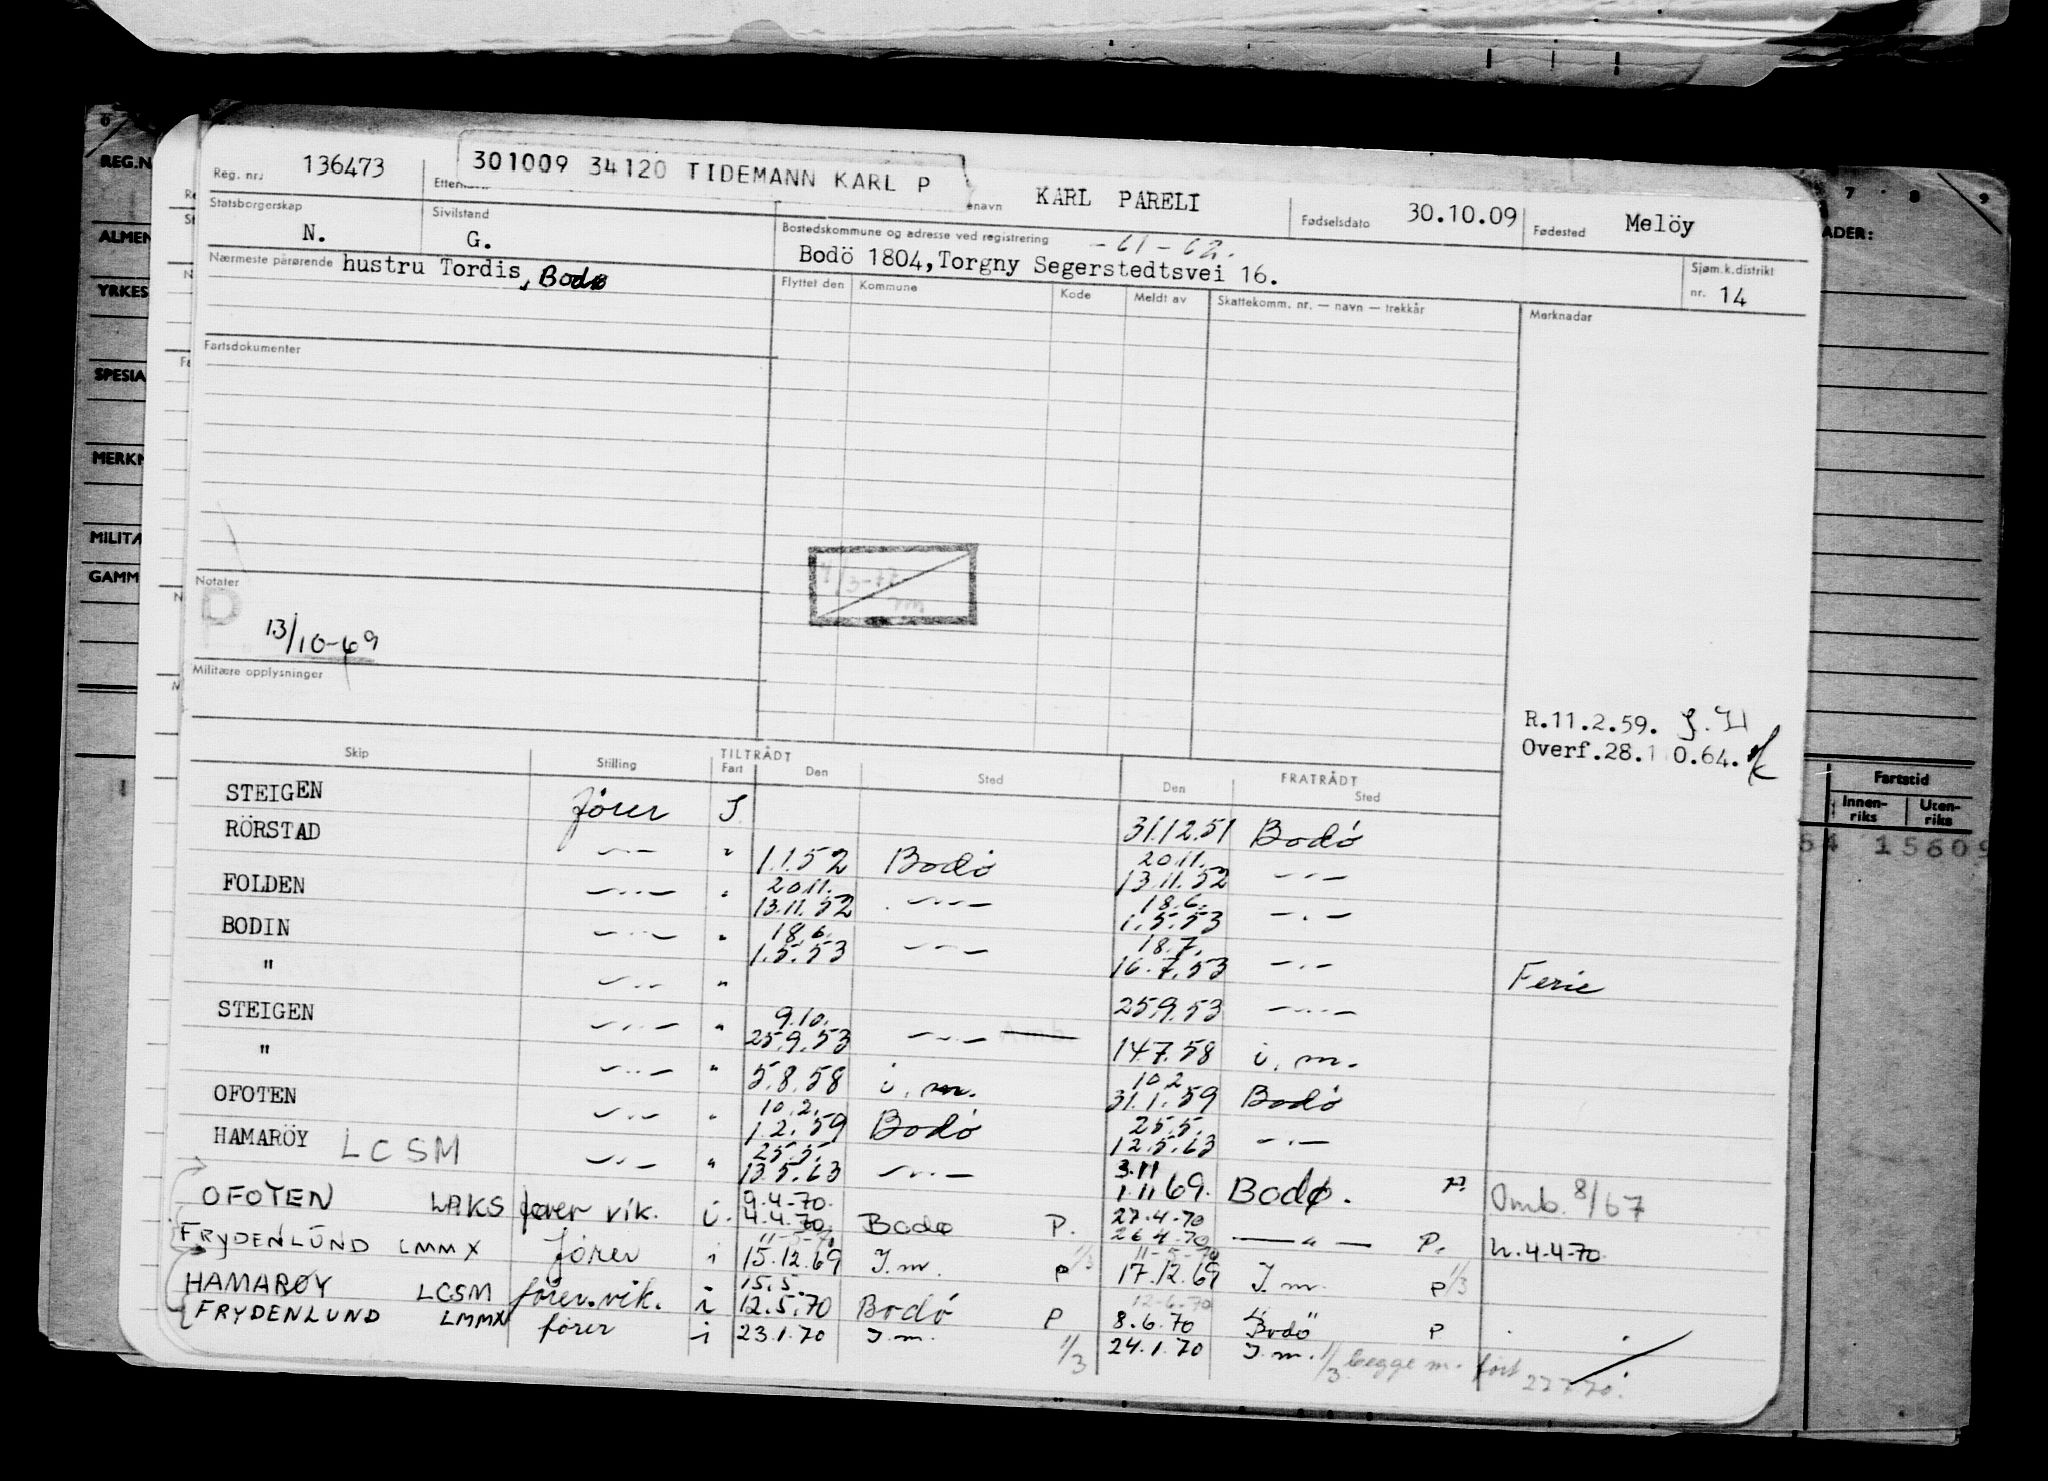 REG.N
ALMEN
YRKES
SPESIA
MERKN
MILITÆ
GAMM
7 8 9
ADER:
Fartstid
Innen-riks Uten-riks
64 15609
Reg. nr. 136473
301009 34120 TIDEMANN KARL P
Ettern
enavn KARL PARELI
Fødselsdato 30.10.09
Fødested Melöy
Statsborgerskap N.
Sivilstand G.
Bostedskommune og adresse ved registrering - 61 - 62.
Bodö 1804, Torgny Segerstedtsvei 16.
Sjøm.k.distrikt nr. 14
Nærmeste pårørende hustru Tordis, Bodø
Flyttet den Kommune Kode Meldt av Skattekomm. nr. — navn — trekkår Merknader
Fartsdokumenter
Notater
P
13/10-69
Militære opplysninger
R.11.2.59. J.H
Overf.28.10.64.
Skip Stilling TILTRÅDT Fart Den Sted FRATRÅDT Den Sted
STEIGEN fører I 31.12.51 Bodø
RÖRSTAD —"— " 1.1.52 Bodø 20.11. 13.11.52 —"—
FOLDEN —"— " 20.11. 13.11.52 —"— 18.6. 1.5.53 —"—
BODIN —"— " 18.6. 1.5.53 —"— 18.7. 16.7.53 —"— Ferie
" —"— " 25.9.53 —"—
STEIGEN —"— " 9.10. 25.9.53 —"— 14.7.58 i.m.
" —"— " 5.8.58 i.m. 10.2 31.1.59 Bodø
OFOTEN —"— " 10.2. 1.2.59 Bodø 25.5. 12.5.63 —"—
HAMARÖY LCSM —"— " 25.5. 13.5.63 —"— 3.11 1.11.69. Bodø. P. Omb. 8/67
OFOTEN LAKS fører vik. i. 9.4.70. 4.4.70. Bodø P. 27.4.70 26.4.70 —"— P. h.4.4.70.
FRYDENLUND LMMX fører i 11-5-70 15.12.69 I.m. P 1/3 11-5-70 17.12.69 I.m. P 1/3
HAMARØY LCSM fører.vik. i 15.5. 12.5.70 Bodø P 12-6-70 8.6.70 " Bodø " P
FRYDENLUND LMMX fører i 23.1.70 I.m. 1/3 24.1.70 I.m. 1/3 begge m. ført 27770.